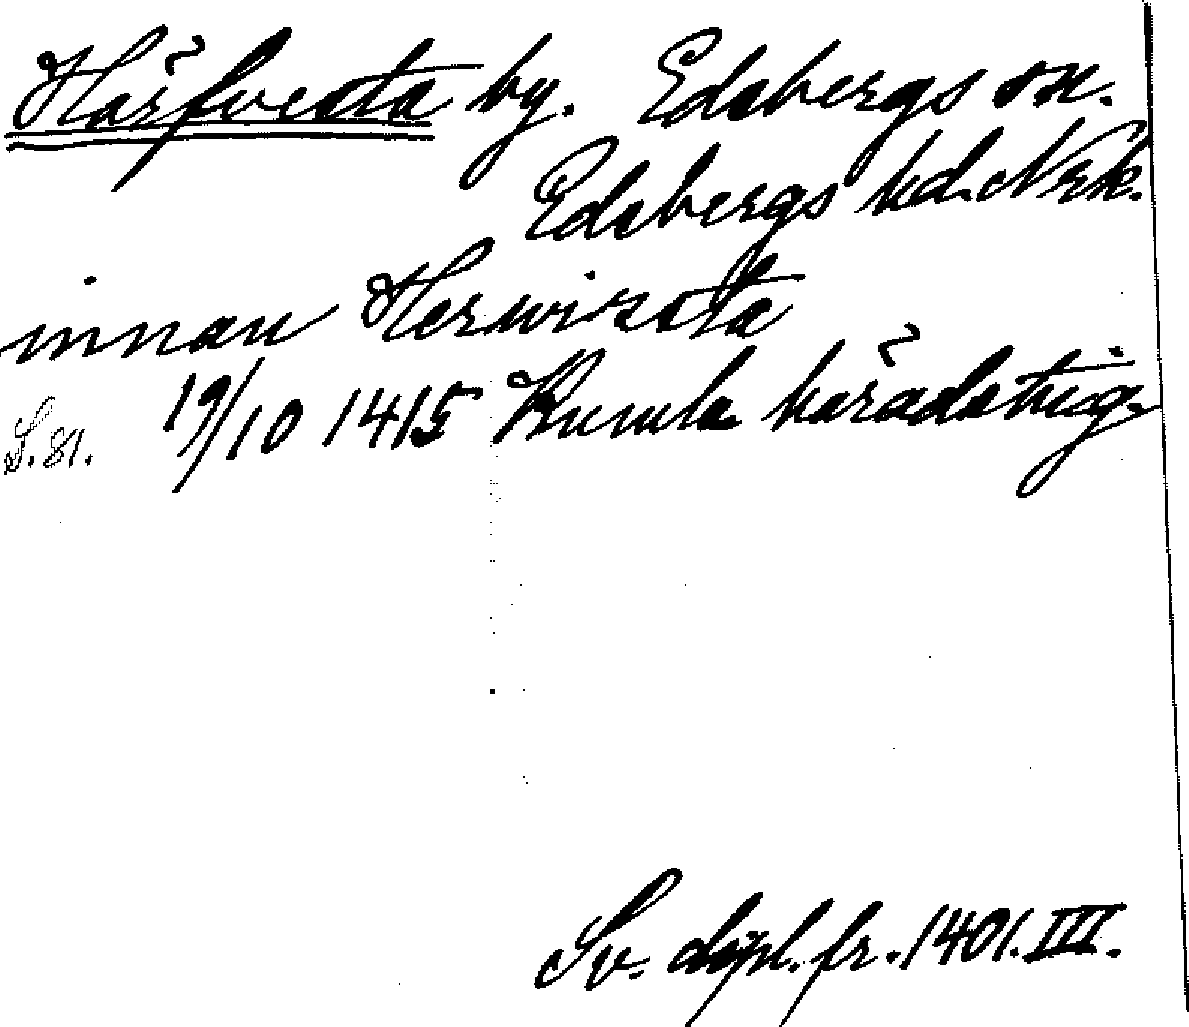 Härfvesta by. Edsbergs sn.
Edsbergs hd. Nrk.
innan Herwirssta
S. 81. 19/10 1415 Kumla häradsting
Sv. dipl. fr. 1401. III.